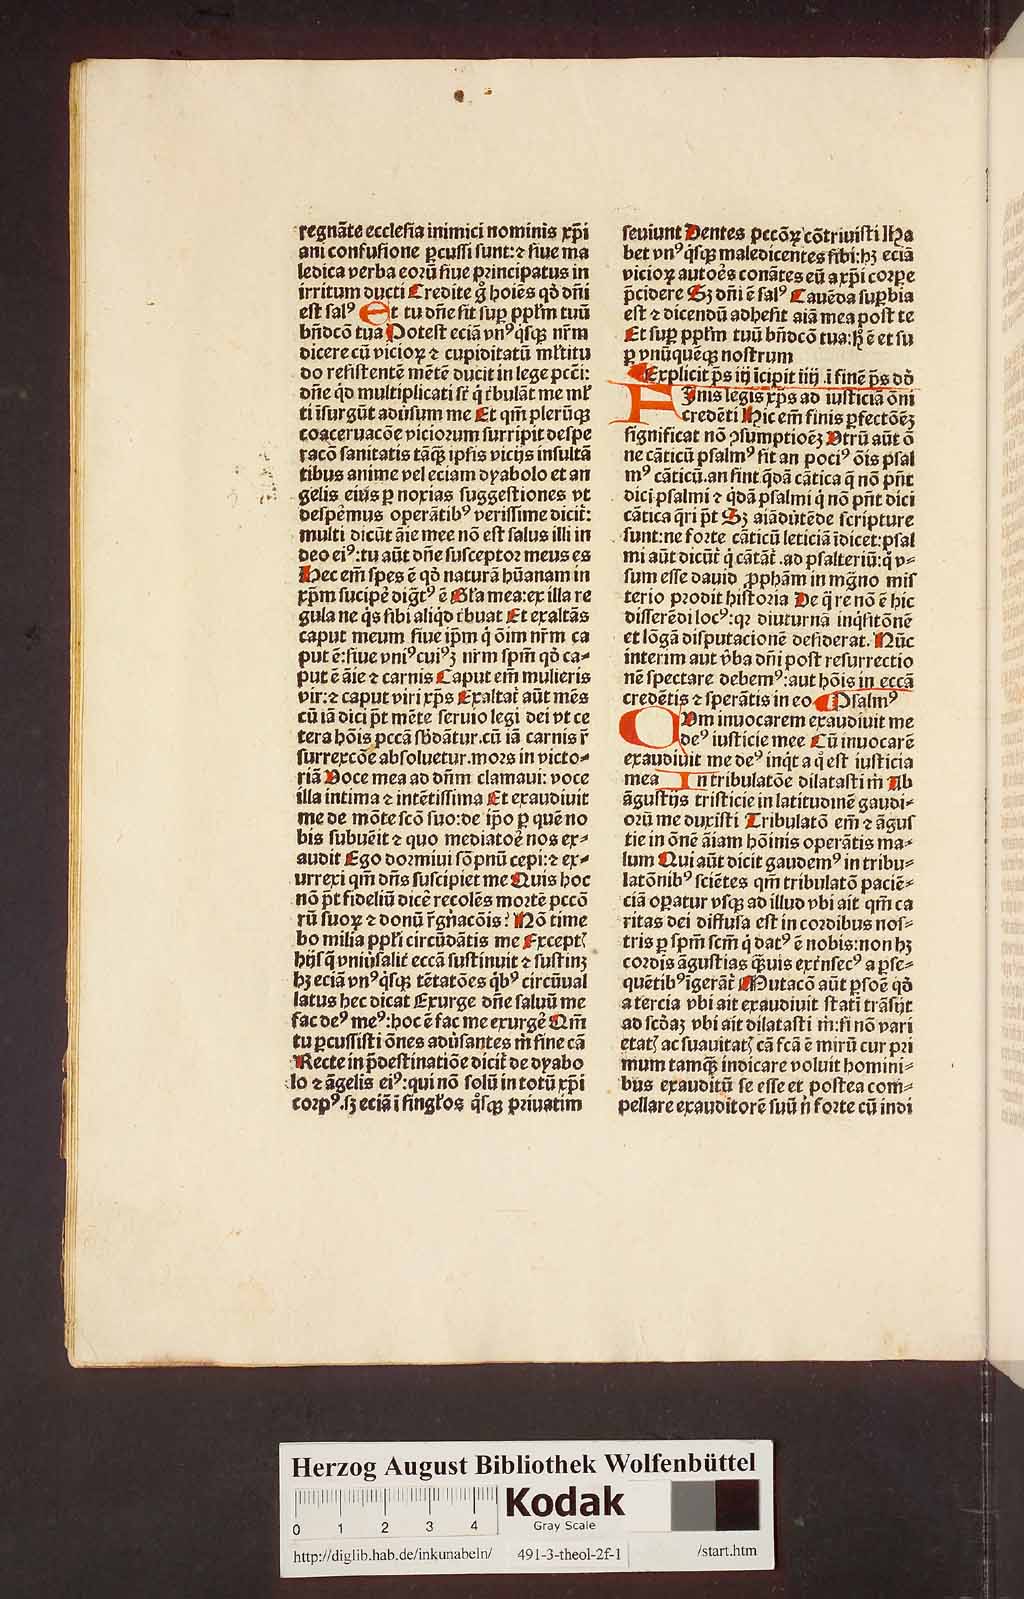 regnāte ecclesia inimici nominis xp̄i
ani confusione ꝑcussi sunt:⁊ siue ma
ledica verba eorū siue principatus in
irritum ducti Credite gͦ hoies qď dn̄i
est salꝰ Et tu dn̄e sit suꝑ ppl̄m tuū
bn̄dcō tua Potest eciā vnꝰ qͥsqꝫ nr̄m
dicere cū vicioꝝ ⁊ cupiditatū ml̄titu
do resistentē mētē ducit in lege pccī:
dn̄e qͥd multiplicati sūt qͥ tͥbulāt me ml̄
ti īsurgūt adūsum me Et qm̄ plerūqꝫ
coaceruacōe viciorum surripit despe
racō sanitatis tāqꝫ ipsis vicijs insultā
tibus anime vel eciam dyabolo et an
gelis eius ꝑ noxias suggestiones vt
despēmus operātibꝰ verissime dicit̄:
multi dicūt āie mee nō est salus illi in
deo eiꝰ:tu aūt dn̄e susceptor meus es
Hec em̄ spes ē qď naturā hūanam in
xp̄m sucipē dig̅tꝰ ē Gl̄a mea:ex illa re
gula ne qͥs sibi aliqͥd tͥbuat Et exaltās
caput meum siue ip̄m qͥ ōim nr̄m ca
put ē:siue vniꝰcuiꝰꝫ nr̄m spm̄ qď ca-
put ē āie ⁊ carnis Caput em̄ mulieris
vir:⁊ caput viri xp̄s Exaltat̄ aūt mēs
cū iā dici pt̄ mēte seruio legi dei vt ce
tera hōis pccā sb̄dātur.cū iā carnis r̄
surrexcōe absoluetur.mors in victo-
riā Voce mea ad dn̄m clamaui: voce
illa intima ⁊ intētissima Et exaudiuit
me de mōte scō suo:de ip̄o ꝑ quē no
bis subuēit ⁊ quo mediatoē nos ex-
audit Ego dormiui sōpnū cepi:⁊ ex-
urrexi qm̄ dn̄s suscipiet me Quis hoc
nō pt̄ fideliū dicē recolēs mortē pccō
rū suoꝝ ⁊ donū r̄gn̄acōis: Nō time
bo milia ppl̄i circūdātis me Except̄
hijs q̄ vniūsalit̄ eccā sustinuit ⁊ sustinꝫ
hꝫ eciā vnꝰ qͥsqꝫ tētatōes qͥbꝰ circūual
latus hec dicat Exurge dn̄e saluū me
fac deꝰ meꝰ:hoc ē fac me exurgē Qm̄
tu ꝑcussisti ōnes adūsantes m̄ sine cā
Recte in p̄destinatiōe dicit̄ de dyabo
lo ⁊ āgelis eiꝰ:qui nō solū in totū xp̄i
corpꝰ.sꝫ eciā ī singl̄os qͥsqꝫ priuatim
seuiunt Dentes pccōꝝ cōtriuisti Ha
bet vnꝰ qͥsqꝫ maledicentes sibi:hꝫ eciā
vicioꝝ autoēs conātes eū a xp̄i corꝑe
p̄cidere Sꝫ dn̄i ē salꝰ Cauēda suꝑbia
est ⁊ dicendū adhesit aīā mea post te
Et suꝑ ppl̄m tuū bn̄dcō tua:hͦ ē et su
ꝑ vnūquēqꝫ nostrum
Explicit p̄s iij īcipit iiij .ī finē p̄s dō
Finis legis xp̄s ad iusticiā ōni
credēti Hic em̄ finis ꝑfectōēꝫ
significat nō ↄsumptioēꝫ Vtrū aūt ō
ne cāticū psalmꝰ sit an pociꝰ ōis psal
mꝰ cāticū.an sint qͥdā cātica q̄ nō pn̄t
dici psalmi ⁊ qͥdā psalmi qͥ nō pn̄t dici
cātica qͥri pt̄ Sꝫ aīadūtēde scripture
sunt:ne forte cāticū leticiā īdicet:psal
mi aūt dicūt̄ qͥ cātāt̄ .ad psalteriū:q̄ v-
sum esse dauid ꝓphām in mg̅no mis
terio prodit historia De q̄ re nō ē hic
disserēdi locꝰ:qꝛ diuturnā inqͥsitōnē
et lōgā disputacionē desiderat. Nūc
interim aut v̄ba dn̄i post resurrectio
nē spectare debemꝰ:aut hōis in eccā
credētis ⁊ sperātis in eo Psalmꝰ
Cvm inuocarem exaudiuit me
deꝰ iusticie mee Cū inuocarē
exaudiuit me deꝰ inqͥt a qͦ est iusticia
mea In tribulatōe dilatasti m̄ Ab
āgustijs tristicie in latitudinē gaudi-
orū me duxisti Tribulatō em̄ ⁊ āgus
tie in ōnē āiam hōinis operātis ma-
lum Qui aūt dicit gaudemꝰ in tribu-
latōnibꝰ sciētes qm̄ tribulatō paciē-
ciā oꝑatur vsqꝫ ad illud vbi ait qm̄ ca
ritas dei diffusa est in cordibus nos-
tris ꝑ spm̄ scm̄ qͥ datꝰ ē nobis:non hꝫ
cordis āgustias qͣuis extͥnsecꝰ a ꝑse-
quētibꝰ īgerāt̄ Mutacō aūt ꝑsoē qď
a tercia vbi ait exaudiuit stati trāsijt
ad scd̄aꝫ vbi ait dilatasti m̄:si nō vari
etat̄ ac suauitat̄ cā fcā ē mirū cur pri
mum tamqͣ indicare voluit homini-
bus exauditū se esse et postea com-
pellare exauditorē suū n̄ forte cū indi
Herzog August Bibliothek Wolfenbüttel
0 1 2 3 4
Kodak
Gray Scale
http://diglib.hab.de/inkunabeln/ 491-3-theol-2f-1 /start.htm